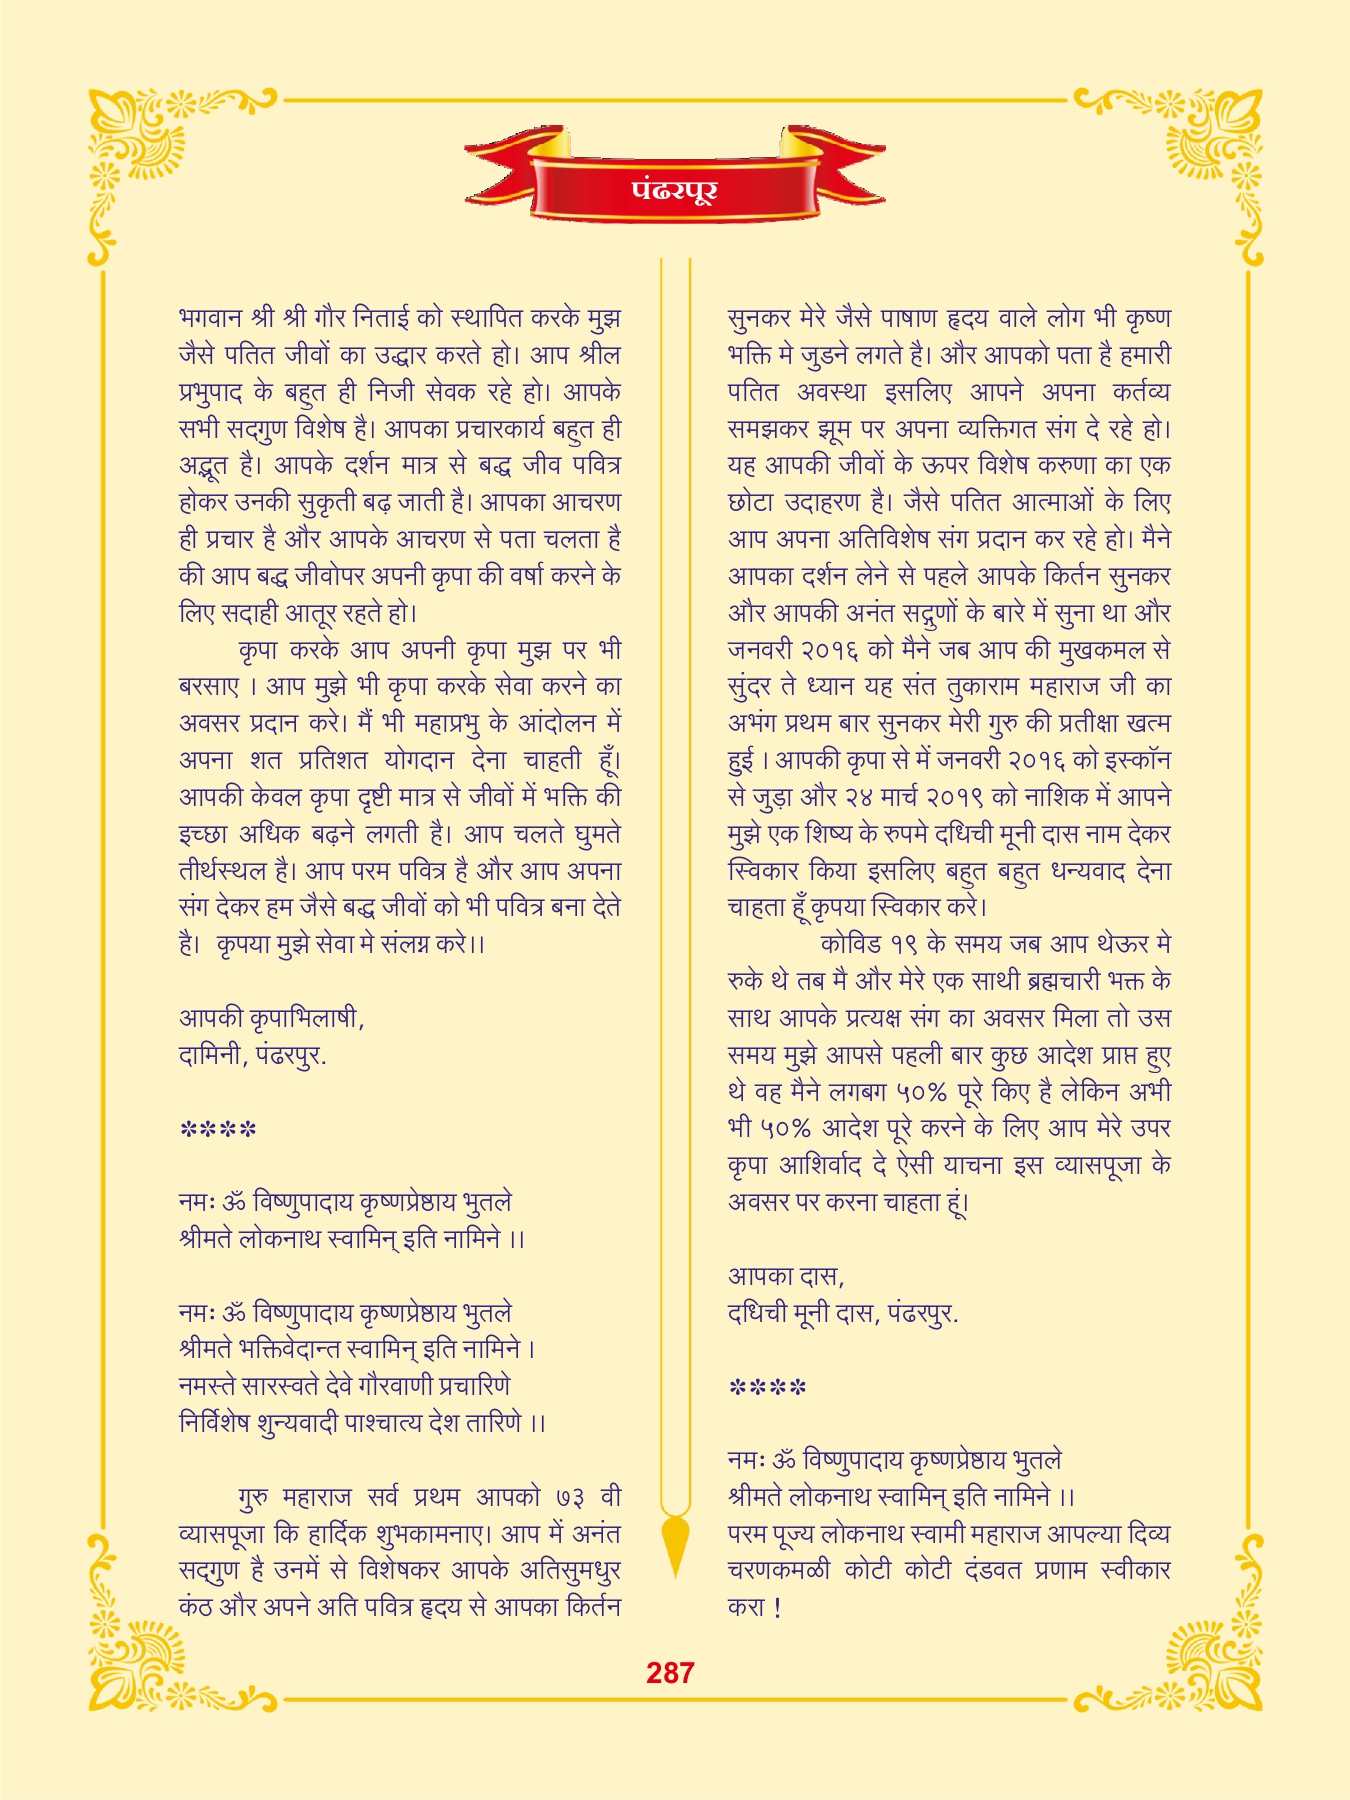 पंढरपूर
भगवान श्री श्री गौर निताई को स्थापित करके मुझ
जैसे पतित जीवों का उद्धार करते हो। आप श्रील
प्रभुपाद के बहुत ही निजी सेवक रहे हो। आपके
सभी सदगुण विशेष है। आपका प्रचारकार्य बहुत ही
अद्भूत है। आपके दर्शन मात्र से बद्ध जीव पवित्र
होकर उनकी सुकृती बढ़ जाती है। आपका आचरण
ही प्रचार है और आपके आचरण से पता चलता है
की आप बद्ध जीवोपर अपनी कृपा की वर्षा करने के
लिए सदाही आतूर रहते हो।
कृपा करके आप अपनी कृपा मुझ पर भी
बरसाए । आप मुझे भी कृपा करके सेवा करने का
अवसर प्रदान करे। मैं भी महाप्रभु के आंदोलन में
अपना शत प्रतिशत योगदान देना चाहती हूँ।
आपकी केवल कृपा दृष्टी मात्र से जीवों में भक्ति की
इच्छा अधिक बढ़ने लगती है। आप चलते घुमते
तीर्थस्थल है। आप परम पवित्र है और आप अपना
संग देकर हम जैसे बद्ध जीवों को भी पवित्र बना देते
है। कृपया मुझे सेवा मे संलग्न करे।।
आपकी कृपाभिलाषी,
दामिनी, पंढरपुर.
****
नमः ॐ विष्णुपादाय कृष्णप्रेष्ठाय भुतले
श्रीमते लोकनाथ स्वामिन् इति नामिने ।।
नमः ॐ विष्णुपादाय कृष्णप्रेष्ठाय भुतले
श्रीमते भक्तिवेदान्त स्वामिन् इति नामिने ।
नमस्ते सारस्वते देवे गौरवाणी प्रचारिणे
निर्विशेष शुन्यवादी पाश्चात्य देश तारिणे ।।
गुरु महाराज सर्व प्रथम आपको ७३ वी
व्यासपूजा कि हार्दिक शुभकामनाए। आप में अनंत
सद्गुण है उनमें से विशेषकर आपके अतिसुमधुर
कंठ और अपने अति पवित्र हृदय से आपका किर्तन
सुनकर मेरे जैसे पाषाण हृदय वाले लोग भी कृष्ण
भक्ति मे जुडने लगते है। और आपको पता है हमारी
पतित अवस्था इसलिए आपने अपना कर्तव्य
समझकर झूम पर अपना व्यक्तिगत संग दे रहे हो।
यह आपकी जीवों के ऊपर विशेष करुणा का एक
छोटा उदाहरण है। जैसे पतित आत्माओं के लिए
आप अपना अतिविशेष संग प्रदान कर रहे हो। मैने
आपका दर्शन लेने से पहले आपके किर्तन सुनकर
और आपकी अनंत सद्गुणों के बारे में सुना था और
जनवरी २०१६ को मैने जब आप की मुखकमल से
सुंदर ते ध्यान यह संत तुकाराम महाराज जी का
अभंग प्रथम बार सुनकर मेरी गुरु की प्रतीक्षा खत्म
हुई । आपकी कृपा से में जनवरी २०१६ को इस्कॉन
से जुड़ा और २४ मार्च २०१९ को नाशिक में आपने
मुझे एक शिष्य के रुपमे दधिची मूनी दास नाम देकर
स्विकार किया इसलिए बहुत बहुत धन्यवाद देना
चाहता हूँ कृपया स्विकार करे।
कोविड १९ के समय जब आप थेऊर मे
रुके थे तब मै और मेरे एक साथी ब्रह्मचारी भक्त के
साथ आपके प्रत्यक्ष संग का अवसर मिला तो उस
समय मुझे आपसे पहली बार कुछ आदेश प्राप्त हुए
थे वह मैने लगबग ५०% पूरे किए है लेकिन अभी
भी ५०% आदेश पूरे करने के लिए आप मेरे उपर
कृपा आशिर्वाद दे ऐसी याचना इस व्यासपूजा के
अवसर पर करना चाहता हूं।
आपका दास,
दधिची मूनी दास, पंढरपुर.
****
नमः ॐ विष्णुपादाय कृष्णप्रेष्ठाय भुतले
श्रीमते लोकनाथ स्वामिन् इति नामिने ।।
परम पूज्य लोकनाथ स्वामी महाराज आपल्या दिव्य
चरणकमळी कोटी कोटी दंडवत प्रणाम स्वीकार
करा !
287